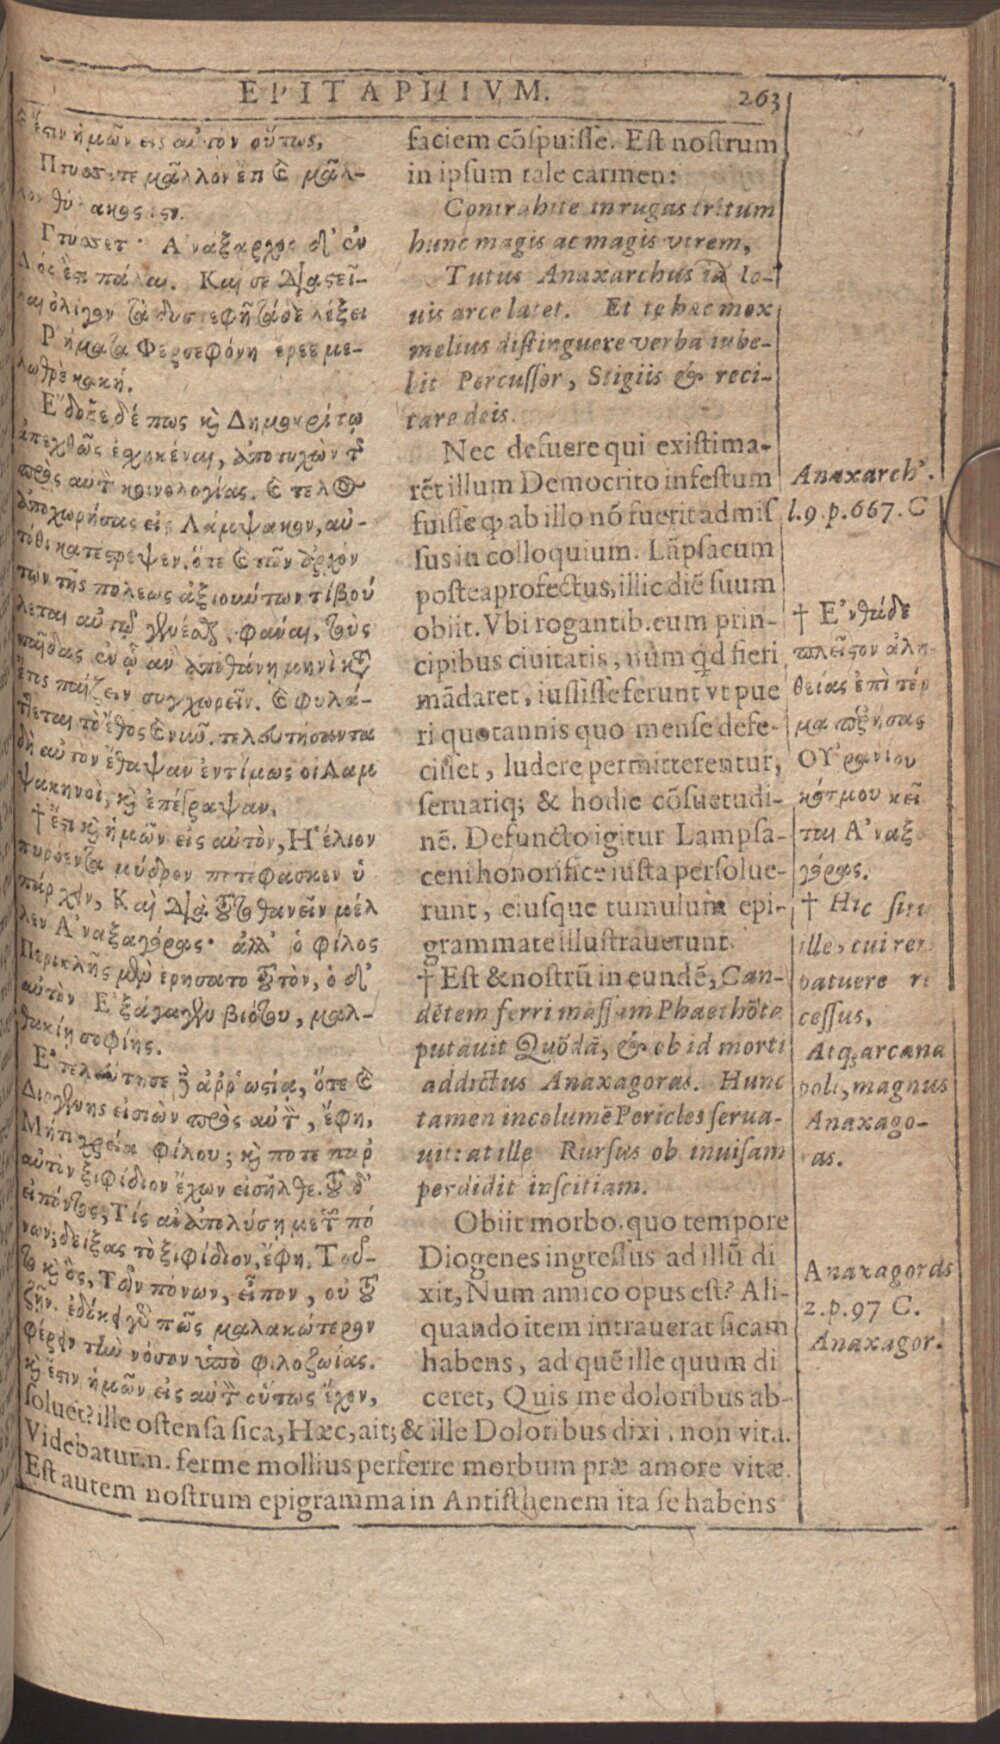 EPITAPHIVM. 263
ἔστιν ἡμῶν εἰς αὐτὸν οὕτως,
μᾶλλον ἔπι καὶ μᾶλ-
Ἀνάξαρχος δ' ἐν
πάλαι. Καὶ σε
ὀλίγον τάδε λέξει
Ῥήματα Φερσεφόνη ἔρρε με-
κακή.
Ἔδοξε δέ πως καὶ Δημοκρίτῳ
ἀπεχθῶς ἐσχηκέναι, ἀποτυχὼν τῆς
πρὸς αὐτὸν κοινολογίας. καὶ τέλος
ἀποχωρήσας εἰς Λάμψακον, αὐ-
τόθι κατέστρεψεν. ὅτε καὶ τῶν ἀρχόν
των τῆς πόλεως ἀξιούντων τί βού
λεται αὐτῷ γενέσθαι, φάναι, τοὺς
παῖδας ἐν ᾧ ἂν ἀποθάνῃ μηνὶ κατ'
ἔτος παίζειν συγχωρεῖν. καὶ φυλά-
τεται τὸ ἔθος καὶ νῦν. τελευτήσαντα
δὴ αὐτὸν ἔθαψαν ἐντίμως οἱ Λαμ
ψακηνοὶ, καὶ ἐπέγραψαν.
† ἔστι καὶ ἡμῶν εἰς αὐτὸν, Ἠέλιον
πυρόεντα μύδρον ποτ' ἔφασκεν ὑ
πάρχειν, Καὶ διὰ τοῦτο θανεῖν μέλ
λεν Ἀναξαγόρας· ἀλλ' ὁ φίλος
Περικλῆς μὲν ἐρύσατο τοῦτον, ὁ δ'
αὐτὸν Ἐξάγαγεν βιότου, μαλ-
θακίῃ σοφίης.
Ἐτελεύτησε δὲ ἀρρωσίᾳ, ὅτε καὶ
Διογένης εἰσιὼν πρὸς αὐτὸν, ἔφη,
Μήτι χρεία φίλου; καὶ ποτε παρ'
αὐτὸν ξιφίδιον ἔχων εἰσῆλθε. τοῦ δ'
εἰπόντος, Τίς ἂν ἀπολύσῃ με τῶν πό
νων; δείξας τὸ ξιφίδιον, ἔφη, Τοῦ-
το καὶ ὃς, Τῶν πόνων, εἶπον, οὐ τοῦ
ζῆν. ἐδόκει γὰρ πῶς μαλακώτερον
φέρειν τὴν νόσον ὑπὸ φιλοζωίας.
καὶ ἔστιν ἡμῶν εἰς αὐτὸν οὕτως ἔχον,
faciem cōspuisse. Est nostrum
in ipsum tale carmen:
Contrahite in rugas tritum
hunc magis ac magis vtrem,
Tutus Anaxarchus iā Io-
uis arce latet. Et te hac mox
melius distinguere verba iube-
bit Percussor, Stigiis & reci-
tare deis.
Nec defuere qui existima-
rēt illum Democrito infestum
fuisse ꝙ ab illo nō fuerit admis
sus in colloquium. Lāpsacum
postea profectus, illic diē suum
obiit. Vbi rogantib. eum prin-
cipibus ciuitatis, num qd fieri
mādaret, iussisse ferunt vt pue
ri quotannis quo mense defe-
cisset, ludere permitterentur,
seruariq; & hodie cōsuetudi-
nē. Defuncto igitur Lampsa-
ceni honorifice iusta persolue-
runt, eiusque tumulum epi-
grammate illustrauerunt.
† Est & nostrū in eundē, Can-
dētem ferri massam Phaethōta
putauit Quōdā, & ob id morti
addictus Anaxagoras. Hunc
tamen incolumē Pericles serua-
uit: at ille Rursus ob inuisam
perdidit inscitiam.
Obiit morbo. quo tempore
Diogenes ingressus ad illū di
xit, Num amico opus est? Ali-
quando item intrauerat sicam
habens, ad quē ille quum di
ceret, Quis me doloribus ab-
soluet? ille ostensa sica, Hæc, ait; & ille Doloribus dixi, non vita.
Videbatur.n. ferme mollius perferre morbum præ amore vitæ.
Est autem nostrum epigramma in Antisthenem ita se habens
Anaxarch'.
l.9 p.667. C
† Ἐνθάδε
πλεῖστον ἀλη-
θείας ἐπὶ τέρ
μα περήσας
Οὐρανίου
κόσμου κεῖ
ται Ἀναξ
γόρας.
† Hic situ
ille, cui rer
patuere re
cessus,
Atq; arcana
poli, magnus
Anaxago-
as.
Anaxagoras
2.p.97 C.
Anaxagor.